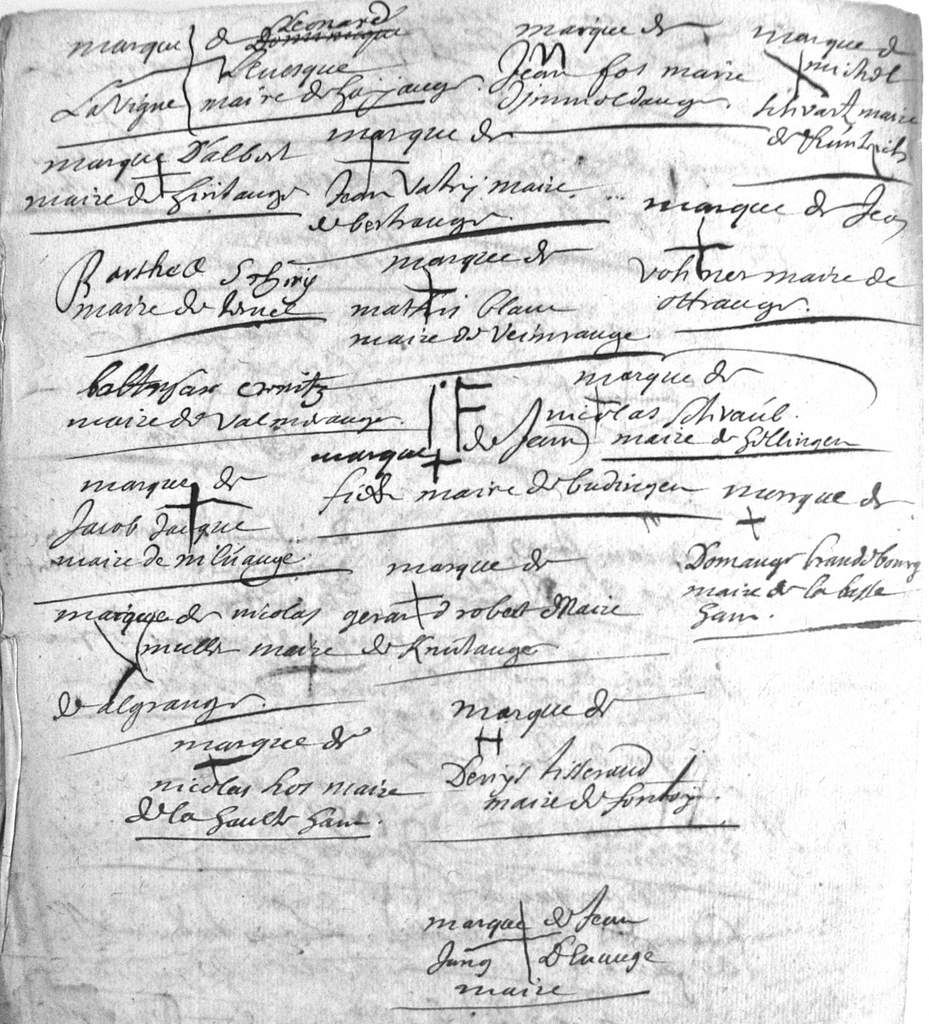 marque de Leonard
Dominique
Leuesque
La Vigne maire de hajange
marque de
Jean fos maire
dimmeldange
marque de
michel
schvartz maire
de Kuntzich
marque D'albert
maire de hintange
marque de
Jean Vatrij maire
de bertrange
marque de Jean
vohner maire de
ottrange
Barthel
maire de
marque de
mathis blanc
maire de Veimrange
baltasar
maire de valmerange
marque de
nicolas schvaub
maire de hillingen
marque de Jean
maire de budingen
marque de
Jacob Jacque
maire de niluange
marque de
gerard robert Maire
de Knutange
marque de
Domange brandebourg
maire de la basse
ham
marque de nicolas
muller maire
de algrange
marque de
nicolas hos maire
de la haulte ham
marque de
H
Denys tisserand
maire de fontoy
marque de Jean
Jung D'euange
maire